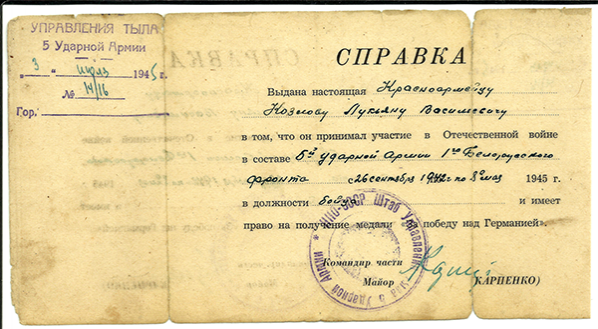 УПРАВЛЕНИЯ ТЫЛА
5 Ударной Армии
„3“ июля 1945 г.
№ 14/16
Гор.
СПРАВКА
Выдана настоящая Красноармейцу
Козлову Лукьяну Васильевичу
в том, что он принимал участие в Отечественной войне
в составе 5й ударной Армии 1го Белорусского
фронта с 26 сентября по 8 мая 1945 г.
в должности бойца и имеет
право на получение медали победу над Германией».
Командир части
Майор
(КАРПЕНКО)
НКО-СССР Штаб Управления Тыла 5 Ударной Армии